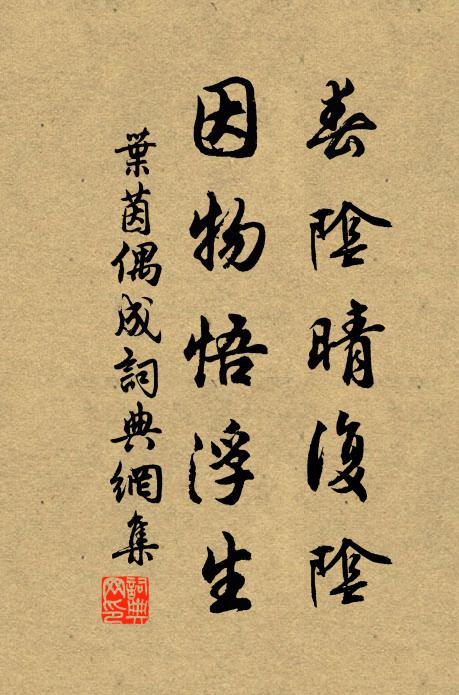 春陰晴復陰
因物悟浮生
葉茵偶成詞典網集
詞典網印